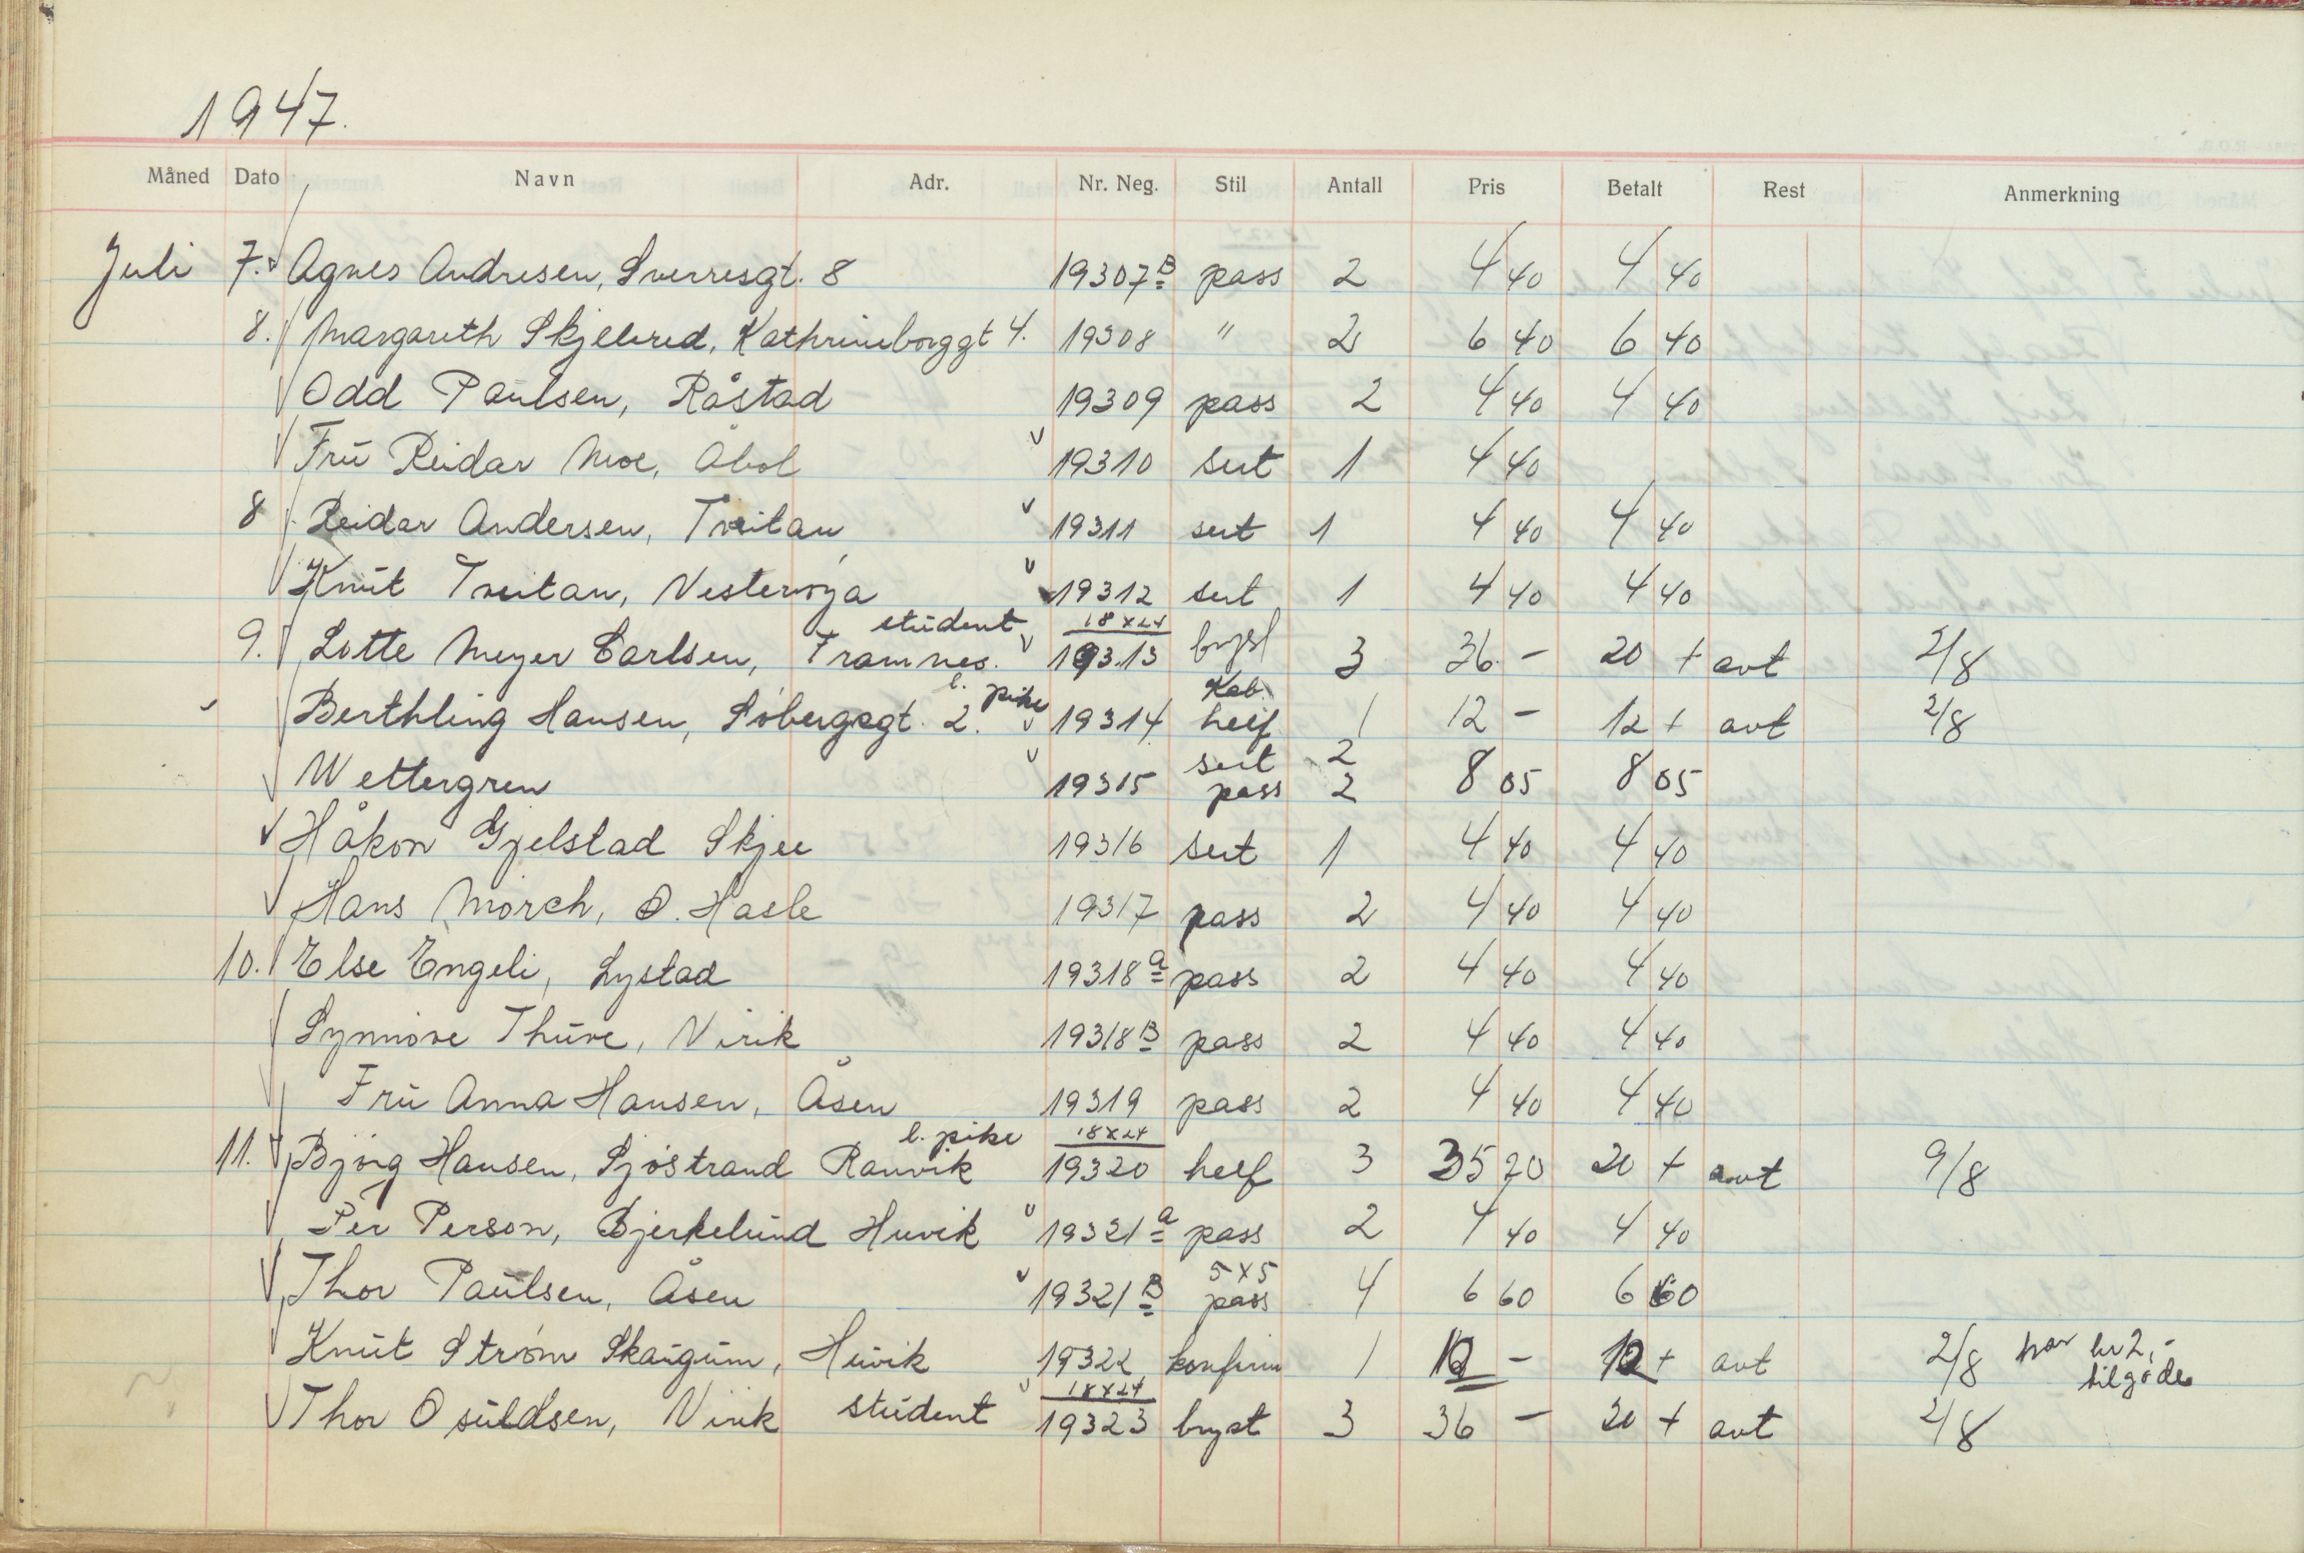 1947.
Måned Dato Navn Adr. Nr. Neg. Stil Antall Pris Betalt Rest Anmerkning
Juli 7. Agnes Andresen, Sverresgt. 8 19307 B pass 2 4 40 4 40
8. Margareth Skjelvred, Kathrineborggt 4. 19308 " 2 6 40 6 40
Odd Paulsen, Råstad 19309 pass 2 4 40 4 40
Frü Reidar Moe, Åbol 19310 sert 1 4 40
8 Reidar Andersen, Tveitan 19311 sert 1 4 40 4 40
Knüt Tveitan, Vesterøya 19312 sert 1 4 40 4 40
student 18x24
9. Lotte Meyer Carlsen, Framnes. 19313 bryst 3 36 - 20 + avt 2/8
l. pike Kab.
Berthling Hansen, Søbergsgt. 2. 19314 helf 1 12 - 12 + avt 2/8
sert 2
Wettergren 19315 pass 2 8 05 8 05
Håkon Gjelstad Skjee 19316 sert 1 4 40 4 40
Hans Mørch, Ø. Hasle 19317 pass 2 4 40 4 40
10. Else Engeli, Lystad 19318 a pass 2 4 40 4 40
Synnøve Thüve, Virik 19318 B pass 2 4 40 4 40
Frü Anna Hansen, Åsen 19319 pass 2 4 40 4 40
l. pike 18x24
11. Bjørg Hansen, Sjøstrand Ranvik 19320 helf 3 35 20 20 + avt 9/8
Per Person, Bjerkelünd Huvik 19321 a pass 2 4 40 4 40
5x5
Thor Paülsen, Åsen 19321 B pass 4 6 60 6 60
Knüt Strøm Skaügüm, Hüvik 19322 konfirm 1 10 - 12 + avt 2/8 har kr 2,- tilgode
18x24
Thor Osüldsen, Virik stüdent 19323 bryst 3 36 - 20 + avt 2/8